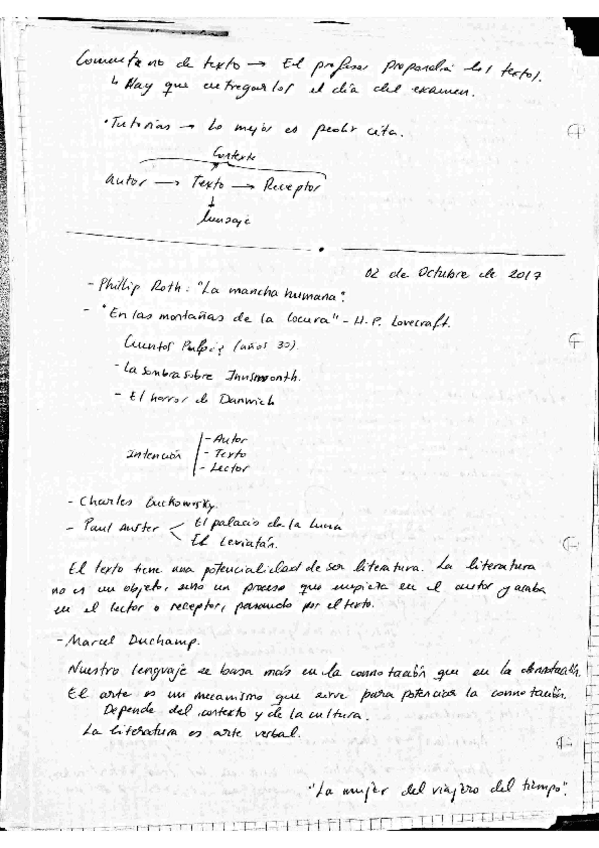 Comentario de texto → El profesor propondrá los textos.
↳ Hay que entregarlos el día del examen.
• Tutorías → Lo mejor es pedir cita.
Contexto
Autor → Texto → Receptor
↓
Mensaje
02 de Octubre de 2017
- Phillip Roth: "La mancha humana".
- "En las montañas de la locura" - H.P. Lovecraft.
Cuentos Pulpis (años 30).
- La sombra sobre Innsmonth.
- El horror de Danwich
Intención
- Autor
- Texto
- Lector
- Charles Buckowsky.
- Paul Auster < El palacio de la luna
El Leviatán.
El texto tiene una potencialidad de ser literatura. La literatura
no es un objeto, sino un proceso que empieza en el autor y acaba
en el lector o receptor, pasando por el texto.
- Marcel Duchamp.
Nuestro lenguaje se basa más en la connotación que en la denotación.
El arte es un mecanismo que sirve para potenciar la connotación.
Depende del contexto y de la cultura.
La literatura es arte verbal.
• "La mujer del viajero del tiempo".